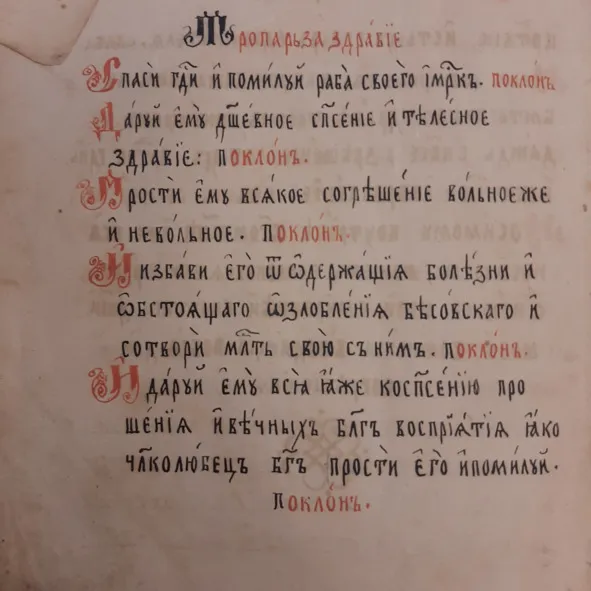 Тропарь за здра́вїе
Спасѝ гдⷭ҇и и҆ поми́лꙋй раба̀ своего̀ и҆́мⷬ҇къ. покло́нъ
Да́рꙋй є҆мꙋ̀ дш҃е́вное сп҃се́нїе и҆ тѣле́сное
здра́вїе: покло́нъ.
Простѝ є҆мꙋ̀ вся́кое согрѣше́нїе во́льноеже
и҆ нево́льное. покло́нъ.
И҆ изба́ви є҆го̀ ѿ ѡ҆держа́щїя болѣ́зни и҆
ѡ҆бстоѧ́щаго ѡ҆зло́бленїя бѣсо́вскаго и҆
сотворѝ млⷭ҇ть свою̀ съ ни́мъ. покло́нъ.
И҆ да́рꙋй є҆мꙋ̀ всѧ̀ ꙗ҆́же коспⷭ҇е́нїю про
ше́нїя и҆ вѣ́чныхъ бл҃гъ воспрїѧ́тїя ꙗ҆́ко
чл҃колю́бецъ бг҃ъ простѝ є҆го̀ и҆поми́лꙋй.
Покло́нъ.